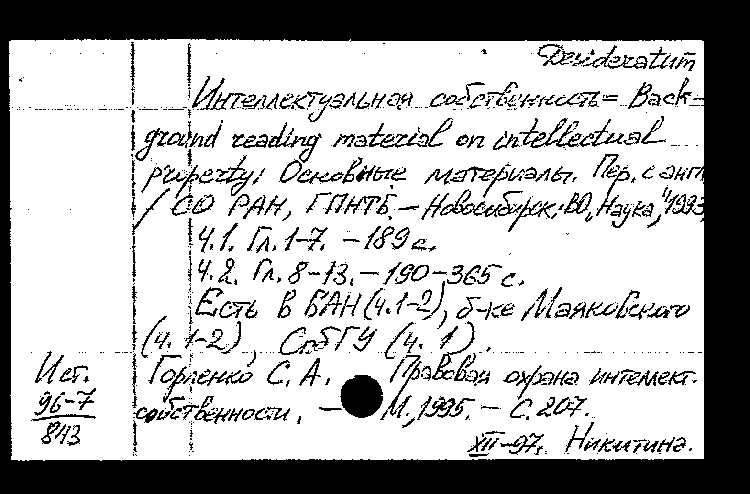 Desideratum
Интеллектуальная собственность = Back-
ground reading material on intellectual
property: Основные материалы. Пер. с англ
/ СО РАН, ГПНТБ. – Новосибирск: ВО „Наука“, 1993,
Ч.1. Гл. 1-7. – 189 с.
Ч.2. Гл. 8-13. – 190-365 с.
Есть в БАН (ч.1-2), б-ке Маяковского
(ч. 1-2), СпбГУ (ч. 1).
Ист. Горленко С. А. Правовая охрана интеллект.
96-7 собственности. – М., 1995. – С. 207.
843
XII-97. Никитина.